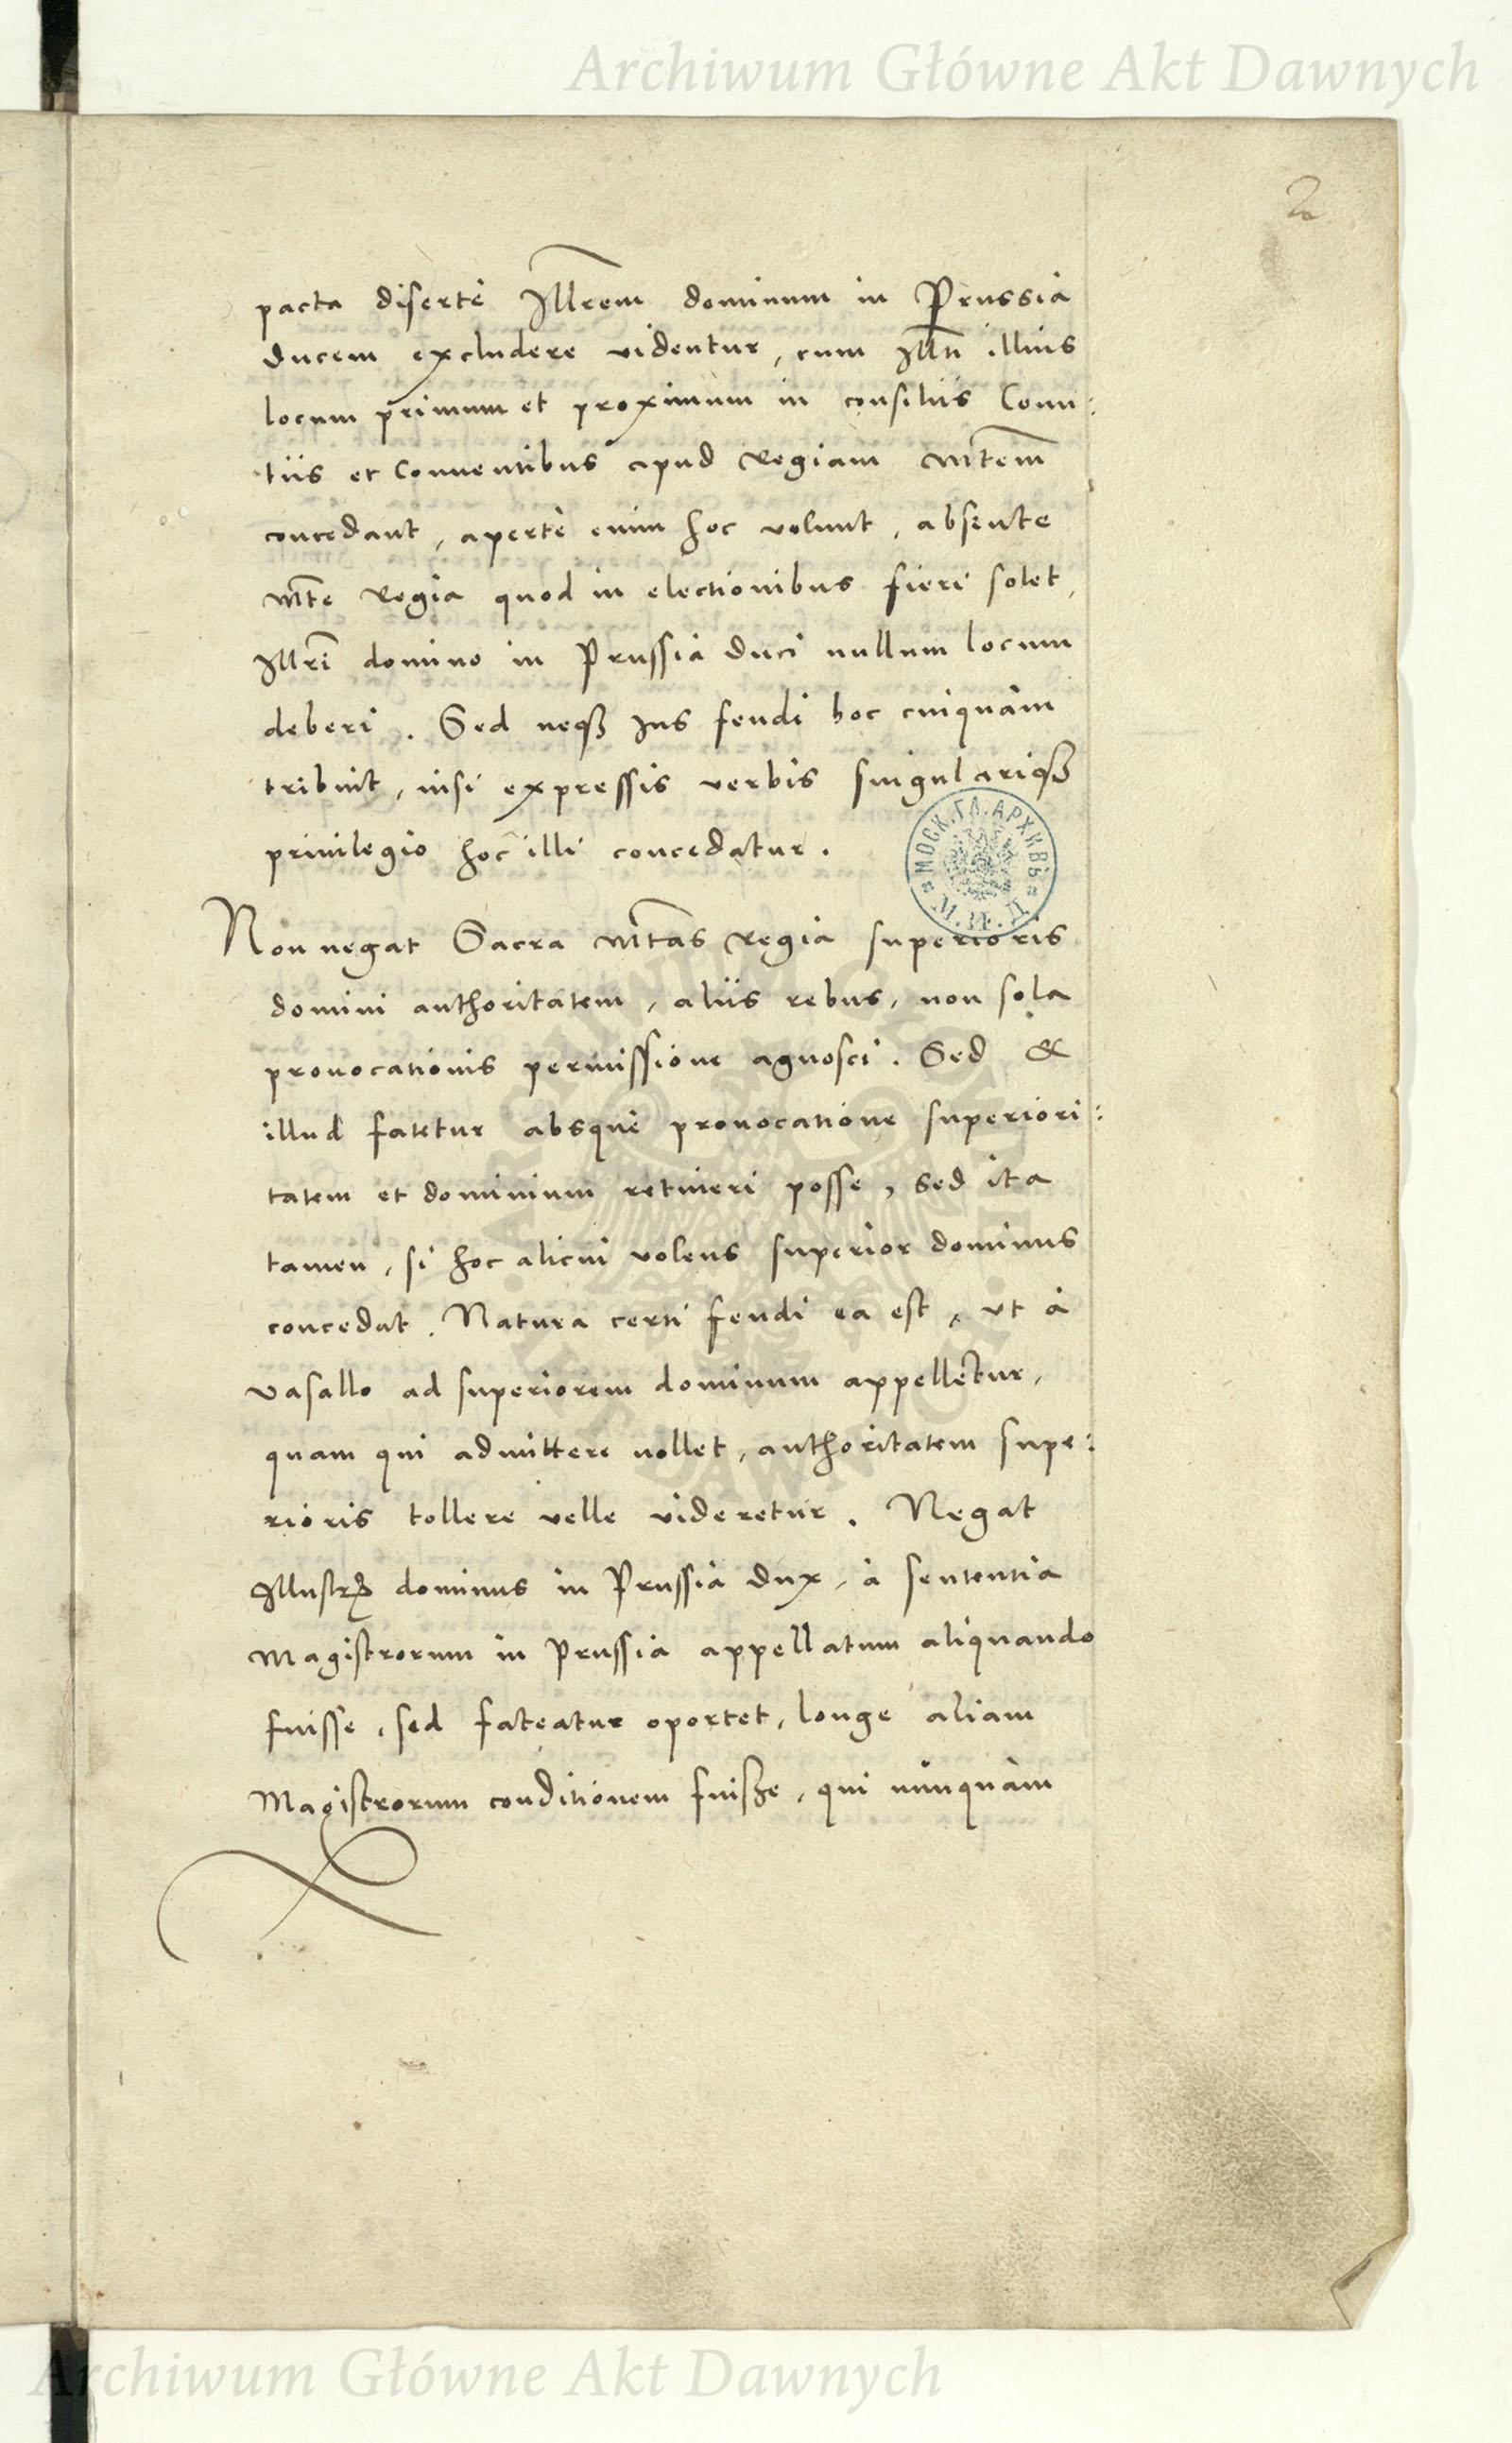 Archiwum Główne Akt Dawnych
2
pacta diserte Illrem dominum in Prussia
ducem excludere videntur, cum Illti illius
locum primum et proximum in consiliis Comi:
tiis et Conuentibus apud Regiam Mtem
concedant, aperte enim hoc volunt, absente
Mte Regia quod in electionibus fieri solet,
Illri domino in Prussia duci nullum locum
deberi. Sed neqȝ Ius feudi hoc cuiquàm
tribuit, nisi expressis verbis singulariqȝ
priuilegio hoc illi concedatur.
МОСК. ГЛ. АРХИВЪ
М. И. Д.
Non negat Sacra Mtas Regia superioris
domini authoritatem, aliis rebus, non sola
prouocationis permissione agnosci. Sed &
illud fatetur absque prouocatione superiori:
tatem et dominium retineri posse, sed ita
tamen, si hoc alicui volens superior dominus
concedat. Natura certi feudi ea est, vt à
vasallo ad superiorem dominum appelletur,
quam qui admittere nollet, authoritatem supe:
rioris tollere velle videretur. Negat
Illustr. dominus in Prussia dux, à sententia
Magistrorum in Prussia appellatum aliquando
fuisse, sed fateatur oportet, longe aliam
Magistrorum conditionem fuisse, qui nunquàm
Archiwum Główne Akt Dawnych